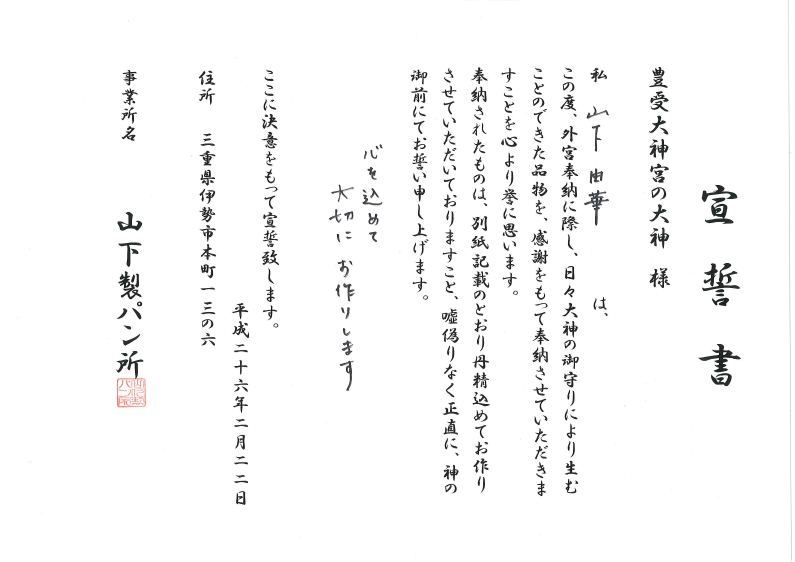 宣誓書
豊受大神宮の大神 様
私 山下由華 は、
この度、外宮奉納に際し、日々大神の御守りにより生む
ことのできた品物を、感謝をもって奉納させていただきま
すことを心より挙に思います。
奉納されたものは、別紙記載のとおり丹精込めてお作り
させていただいておりますこと、嘘偽りなく正直に、神の
御前にてお誓い申し上げます。
心を込めて
大切にお作りします
ここに決意をもって宣誓致します。
平成二十六年二月二二日
住所 三重県伊勢市本町一三の六
事業所名 山下製パン所